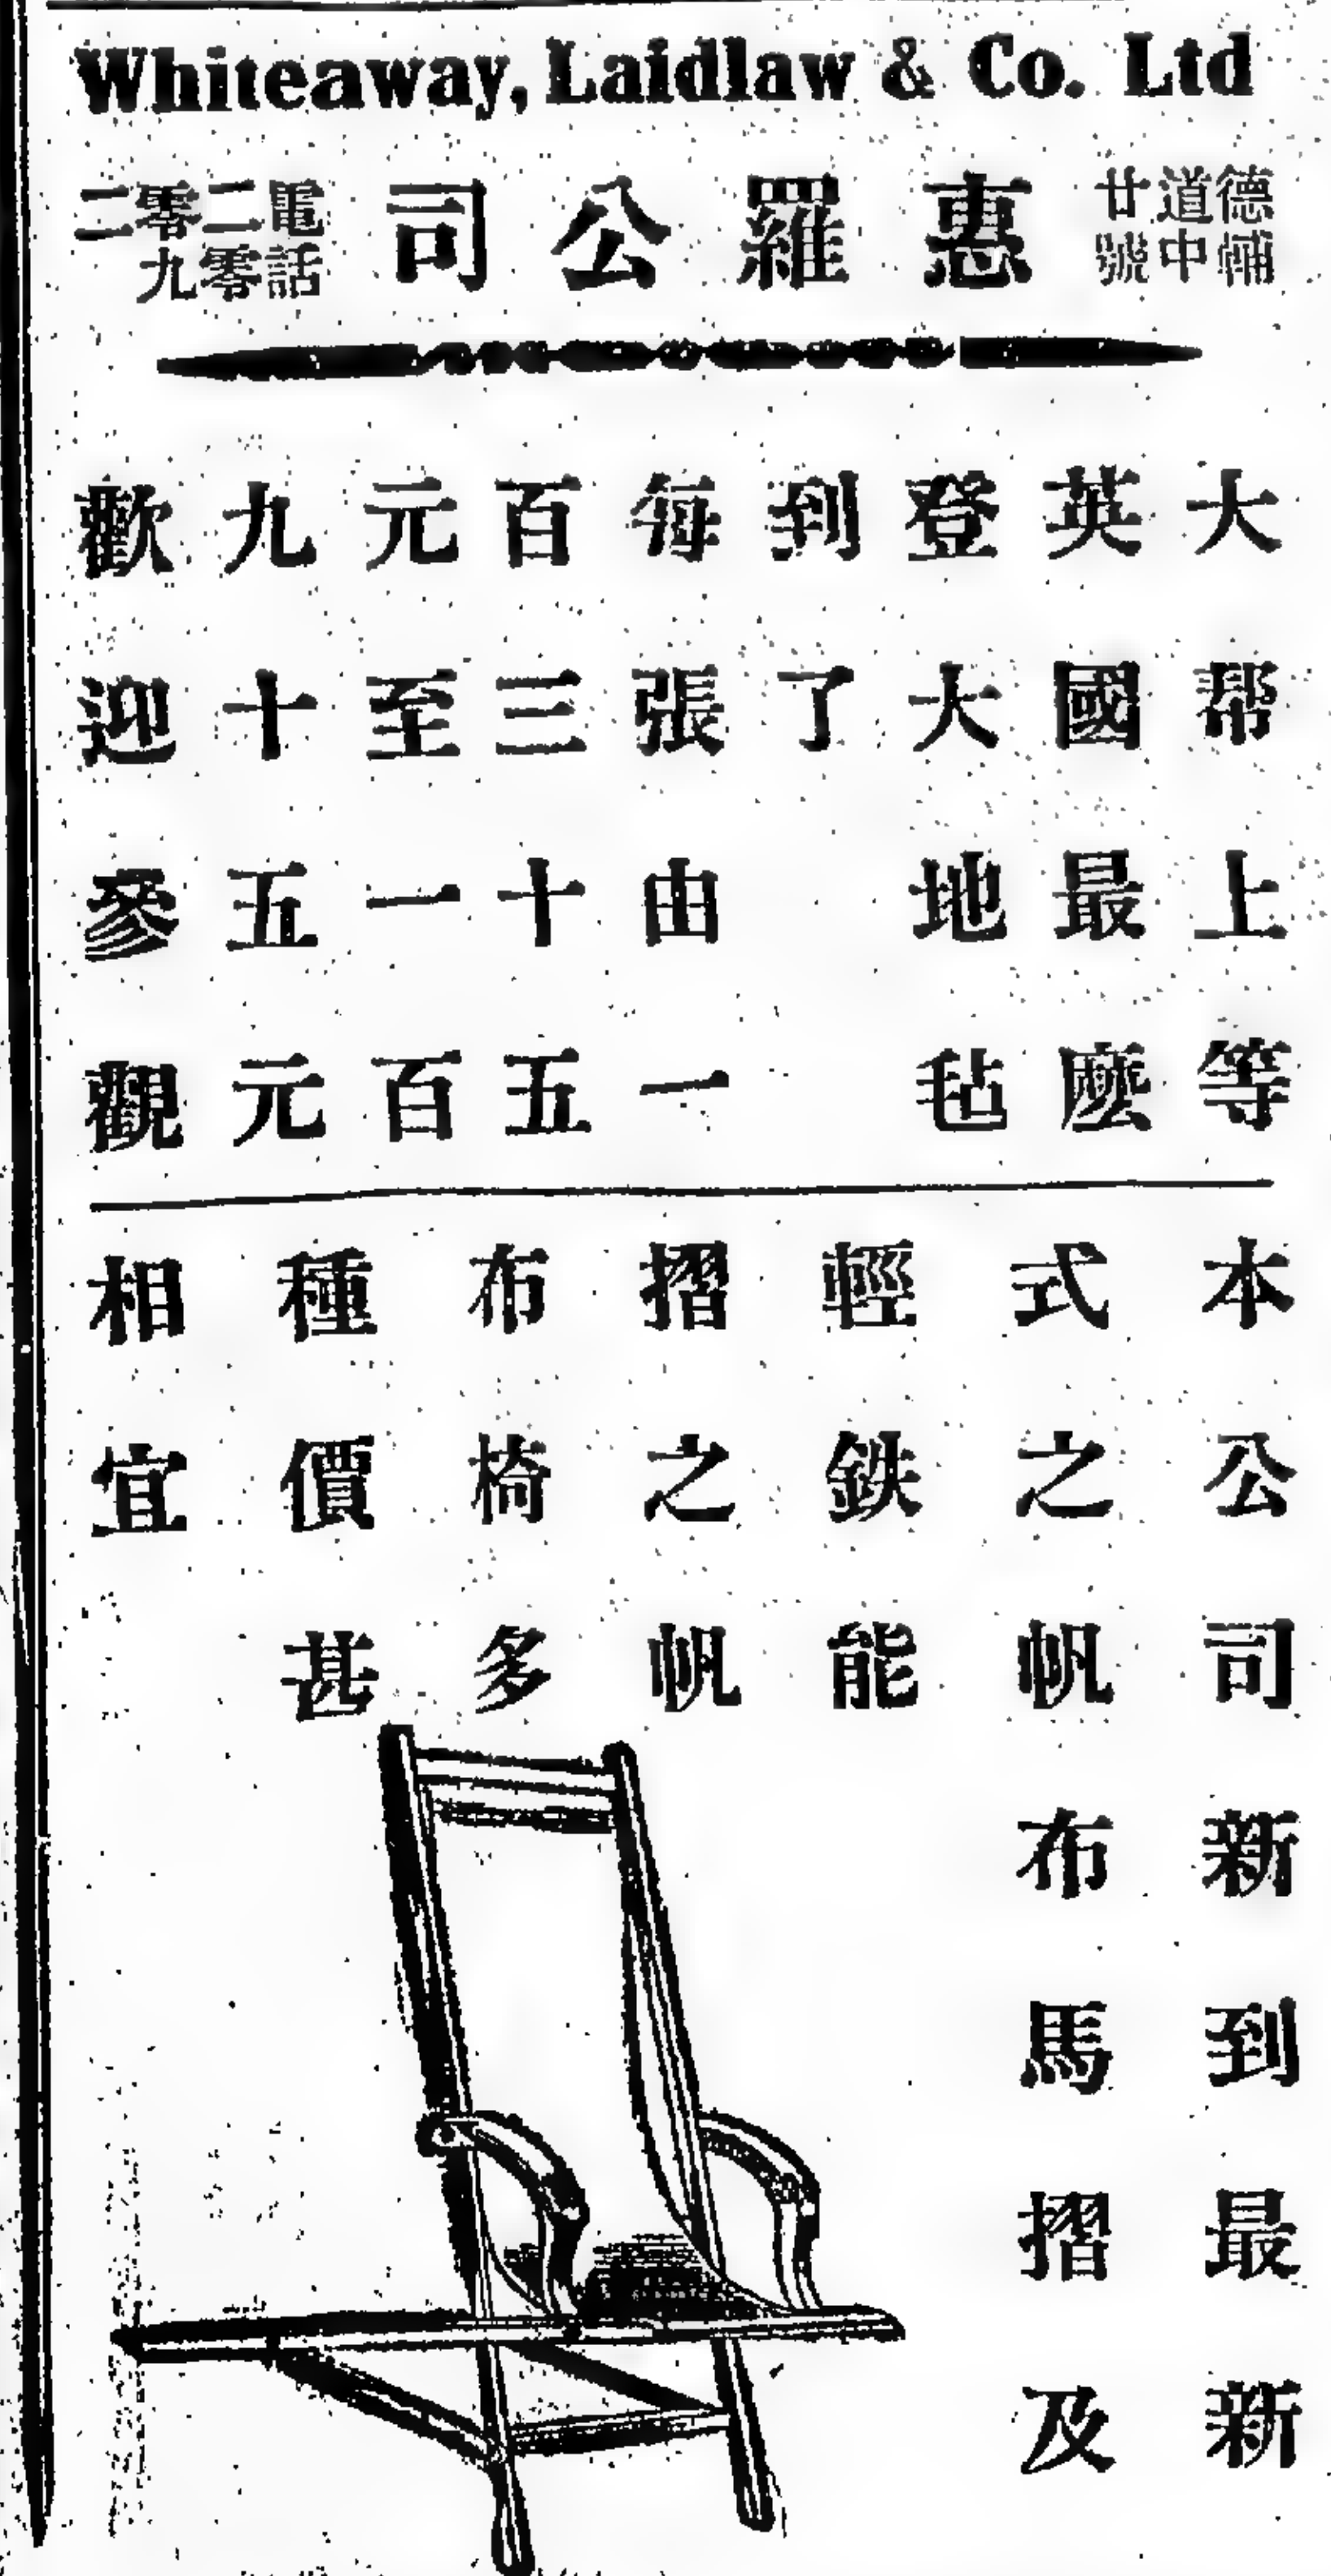 Whiteaway, Laidlaw & Co. Ltd
德輔
道中
廿號
惠羅公司
電話
二零
零九
二
大帮上等
英國最麽
登大地毡
到了
每張由一
百三十五
元至一百
九十五元
歡迎參觀
本公司新到最新
式之帆布馬摺及
輕鉄能
摺之帆
布椅多
種價甚
相宜